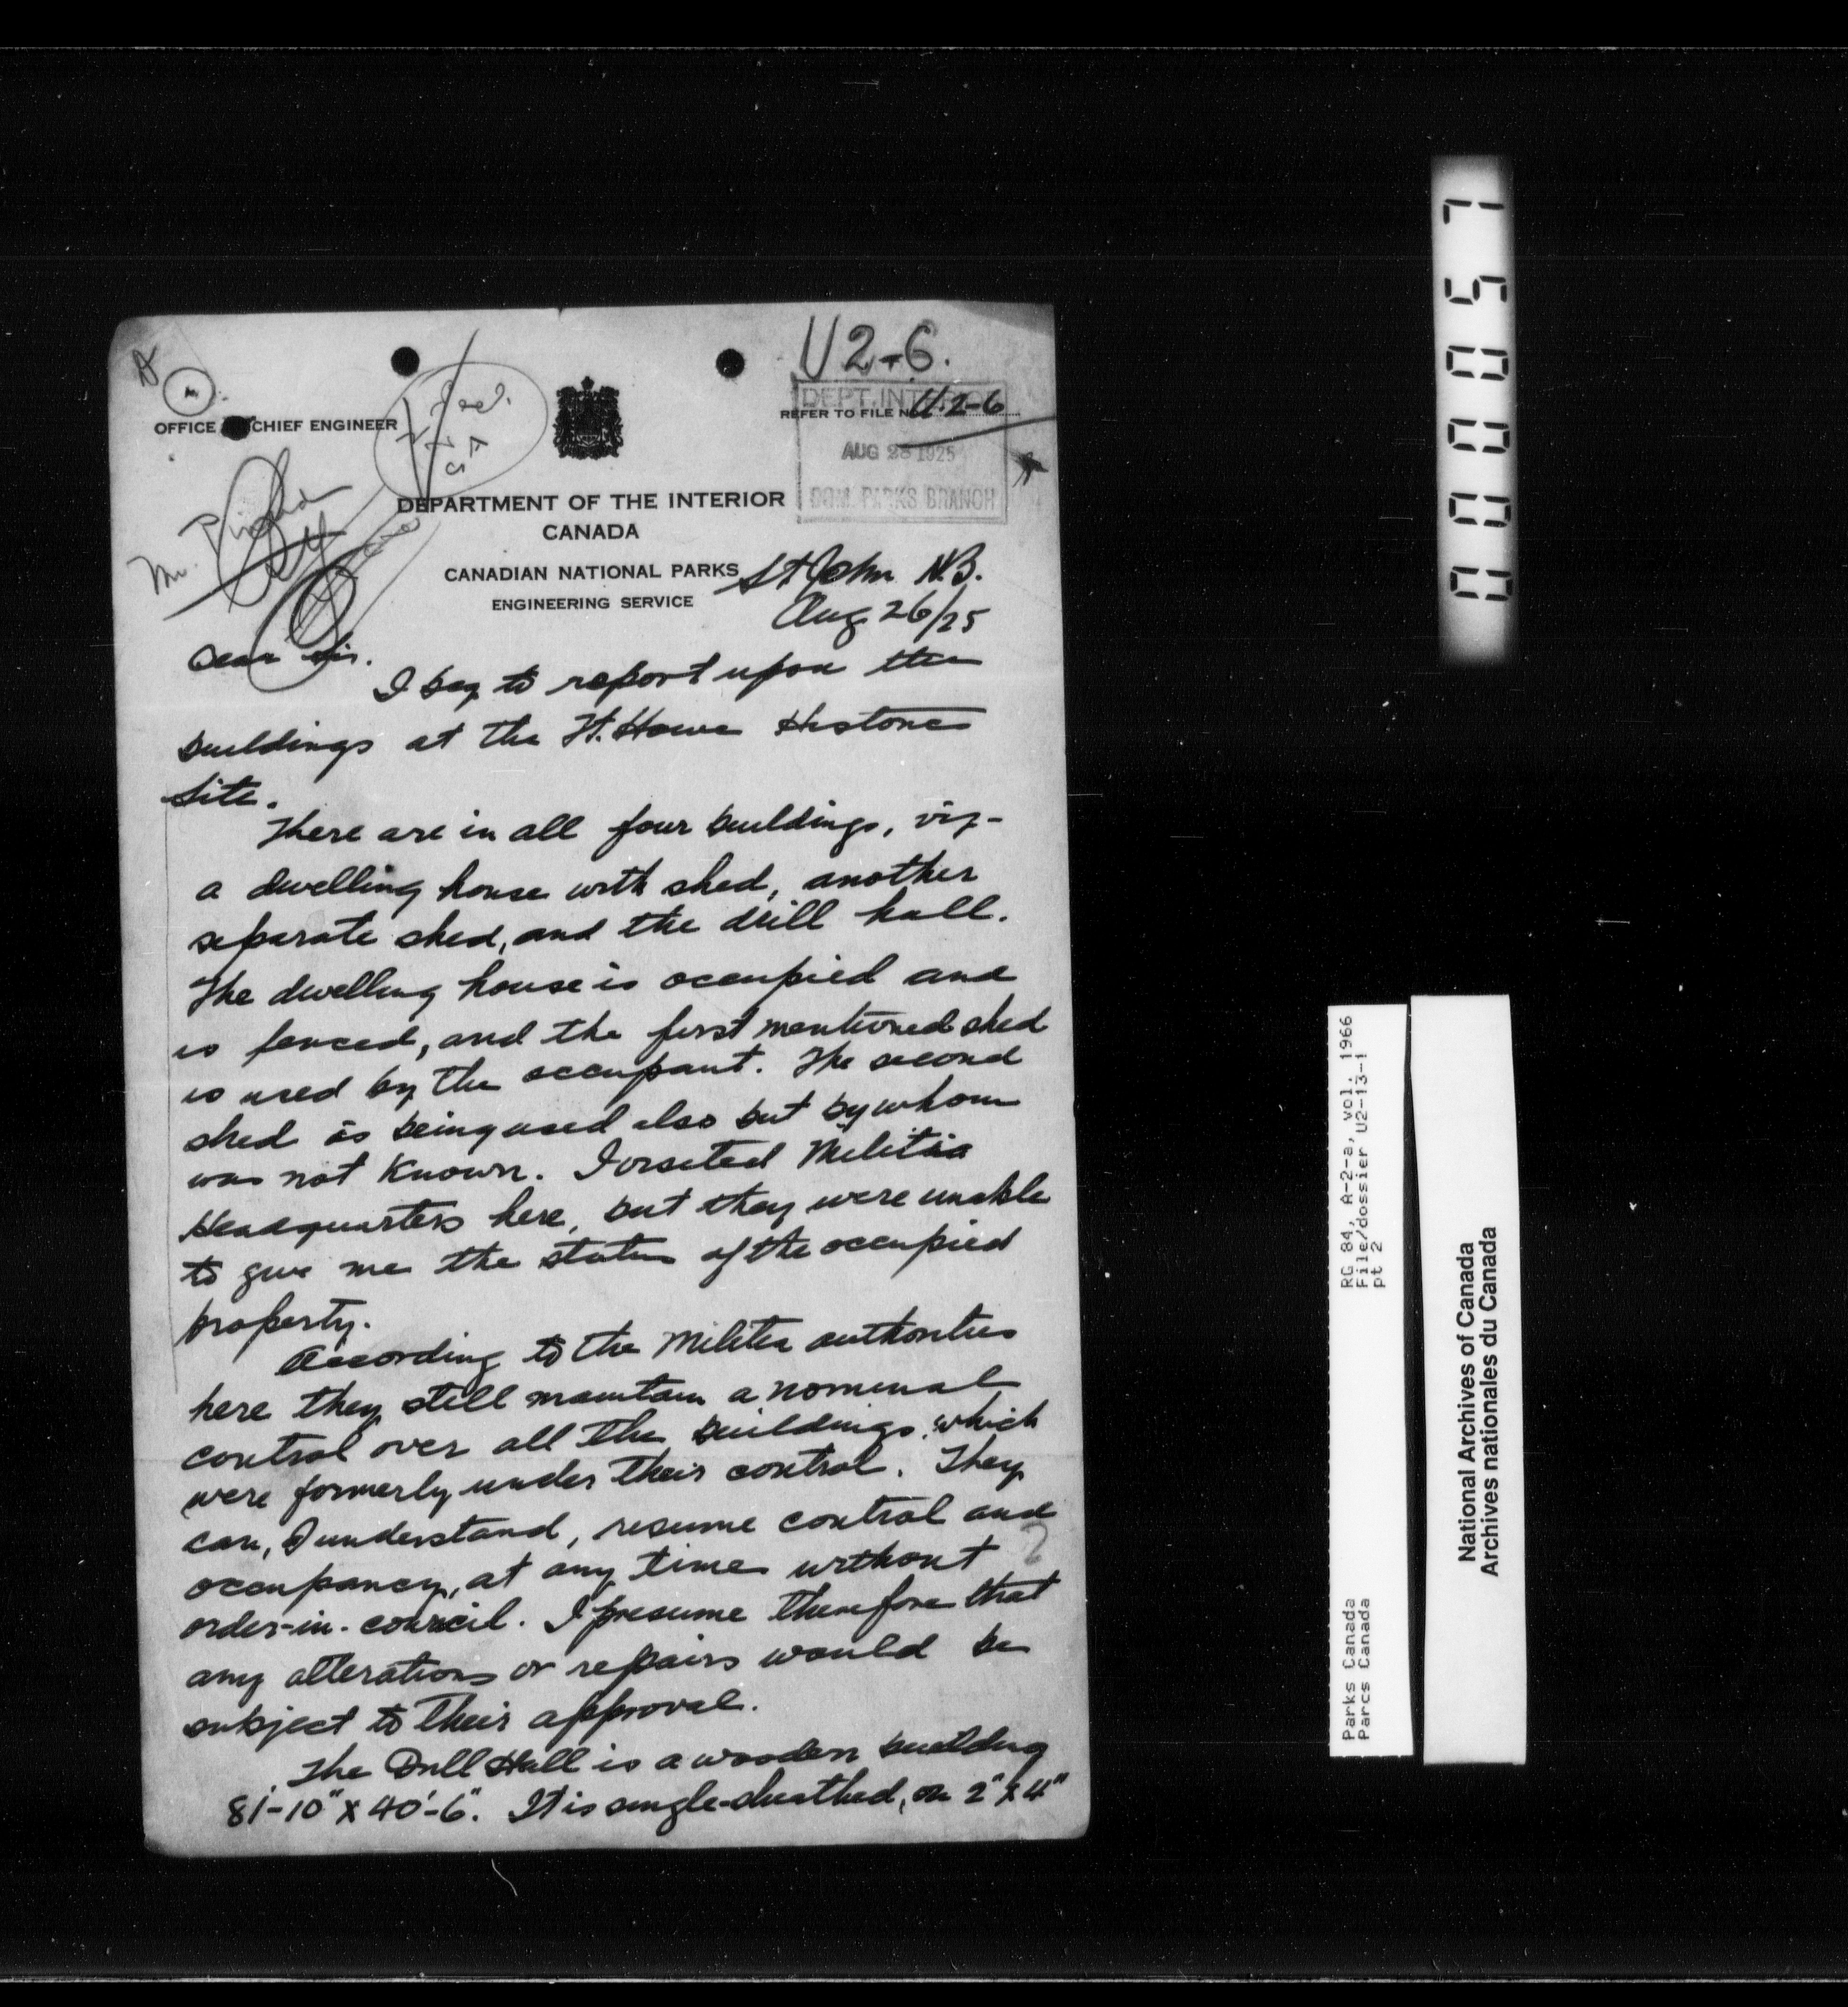 U2-6.
OFFICE CHIEF ENGINEER
REFER TO FILE No. U.2-6
DEPT. INTERIOR
AUG 28 1925
DOM. PARKS BRANCH
DEPARTMENT OF THE INTERIOR
CANADA
CANADIAN NATIONAL PARKS
ENGINEERING SERVICE
Mr.
St John N.B.
Aug 26/25
Dear Sir.
I beg to report upon the
buildings at the Ft. Howe Historic
Site.
There are in all four buildings, viz-
a dwelling house with shed, another
separate shed, and the drill hall.
The dwelling house is occupied and
is fenced, and the first mentioned shed
is used by the occupant. The second
shed is being used also but by whom
was not known. I visited Militia
Headquarters here, but they were unable
to give me the status of the occupied
property.
According to the Militia authorities
here they still maintain a nominal
control over all the buildings, which
were formerly under their control. They
can, I understand, resume control and
occupancy, at any time without ?
order-in-council. I presume therefore that
any alterations or repairs would be
subject to their approval.
The Drill Hall is a wooden building
81'-10" x 40'-6". It is single-sheathed, on 2" x 4"
0000057
RG 84, A-2-a, vol. 1966
File/dossier U2-13-1
pt 2
Parks Canada
Parcs Canada
National Archives of Canada
Archives nationales du Canada